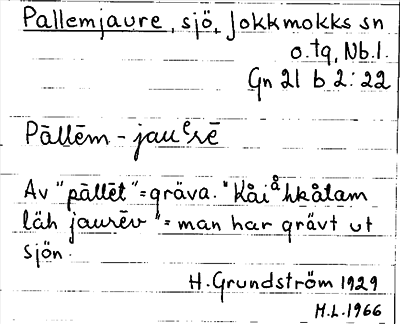 Pallemjaure, sjö, Jokkmokks sn
o. tg, Nb.l.
Gn 21 b 2:22
Pāllēm - jauᵉrē
Av "pāllēt" = gräva. "Kåiåhkåtam
läh jaurēv" = man har grävt ut
sjön.
H. Grundström 1929
H.L. 1966